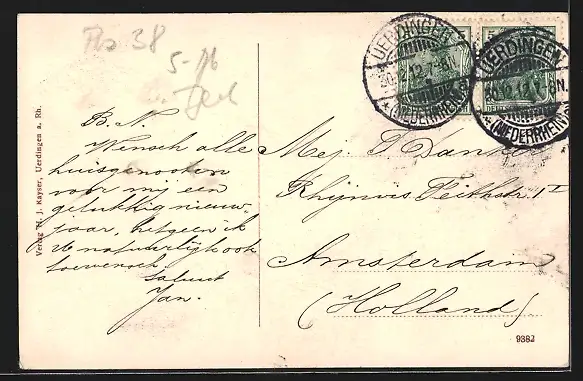 Fbs 38
5-
B. N.
Wensch alle
huisgenooten
voor mij een
gelukkig nieuw-
jaar, hetgeen ik
U natuurlijk ook
toewensch.
Saluut
Jan.
Verlag H. J. Kayser, Uerdingen a. Rh.
UERDINGEN
30.12.12.7-8N.
*(NIEDERRHEIN)
UERDINGEN
30.12.12.7-8N.
*(NIEDERRHEIN)
5
Mej.
Rhijnvis Feithstr. 1 I
Amsterdam
(Holland)
9382